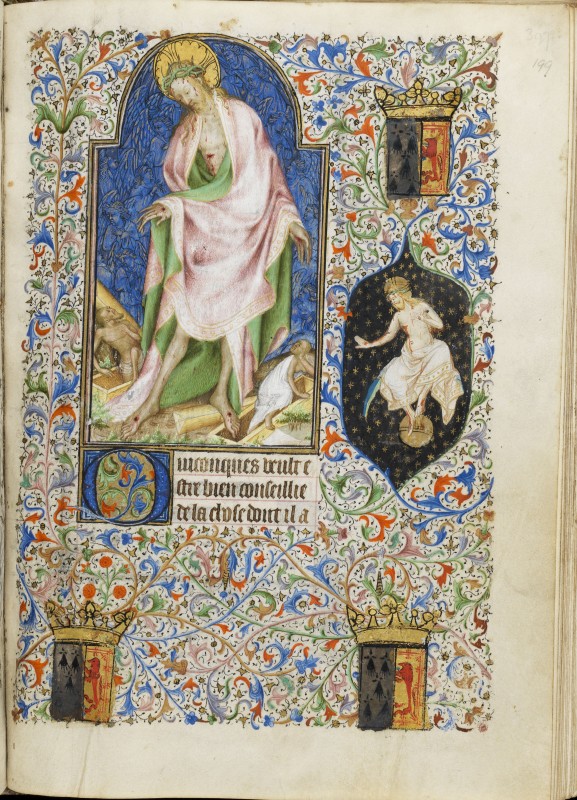 199
Quiconques veult e
stre bien conseillie
de la chose dont il a